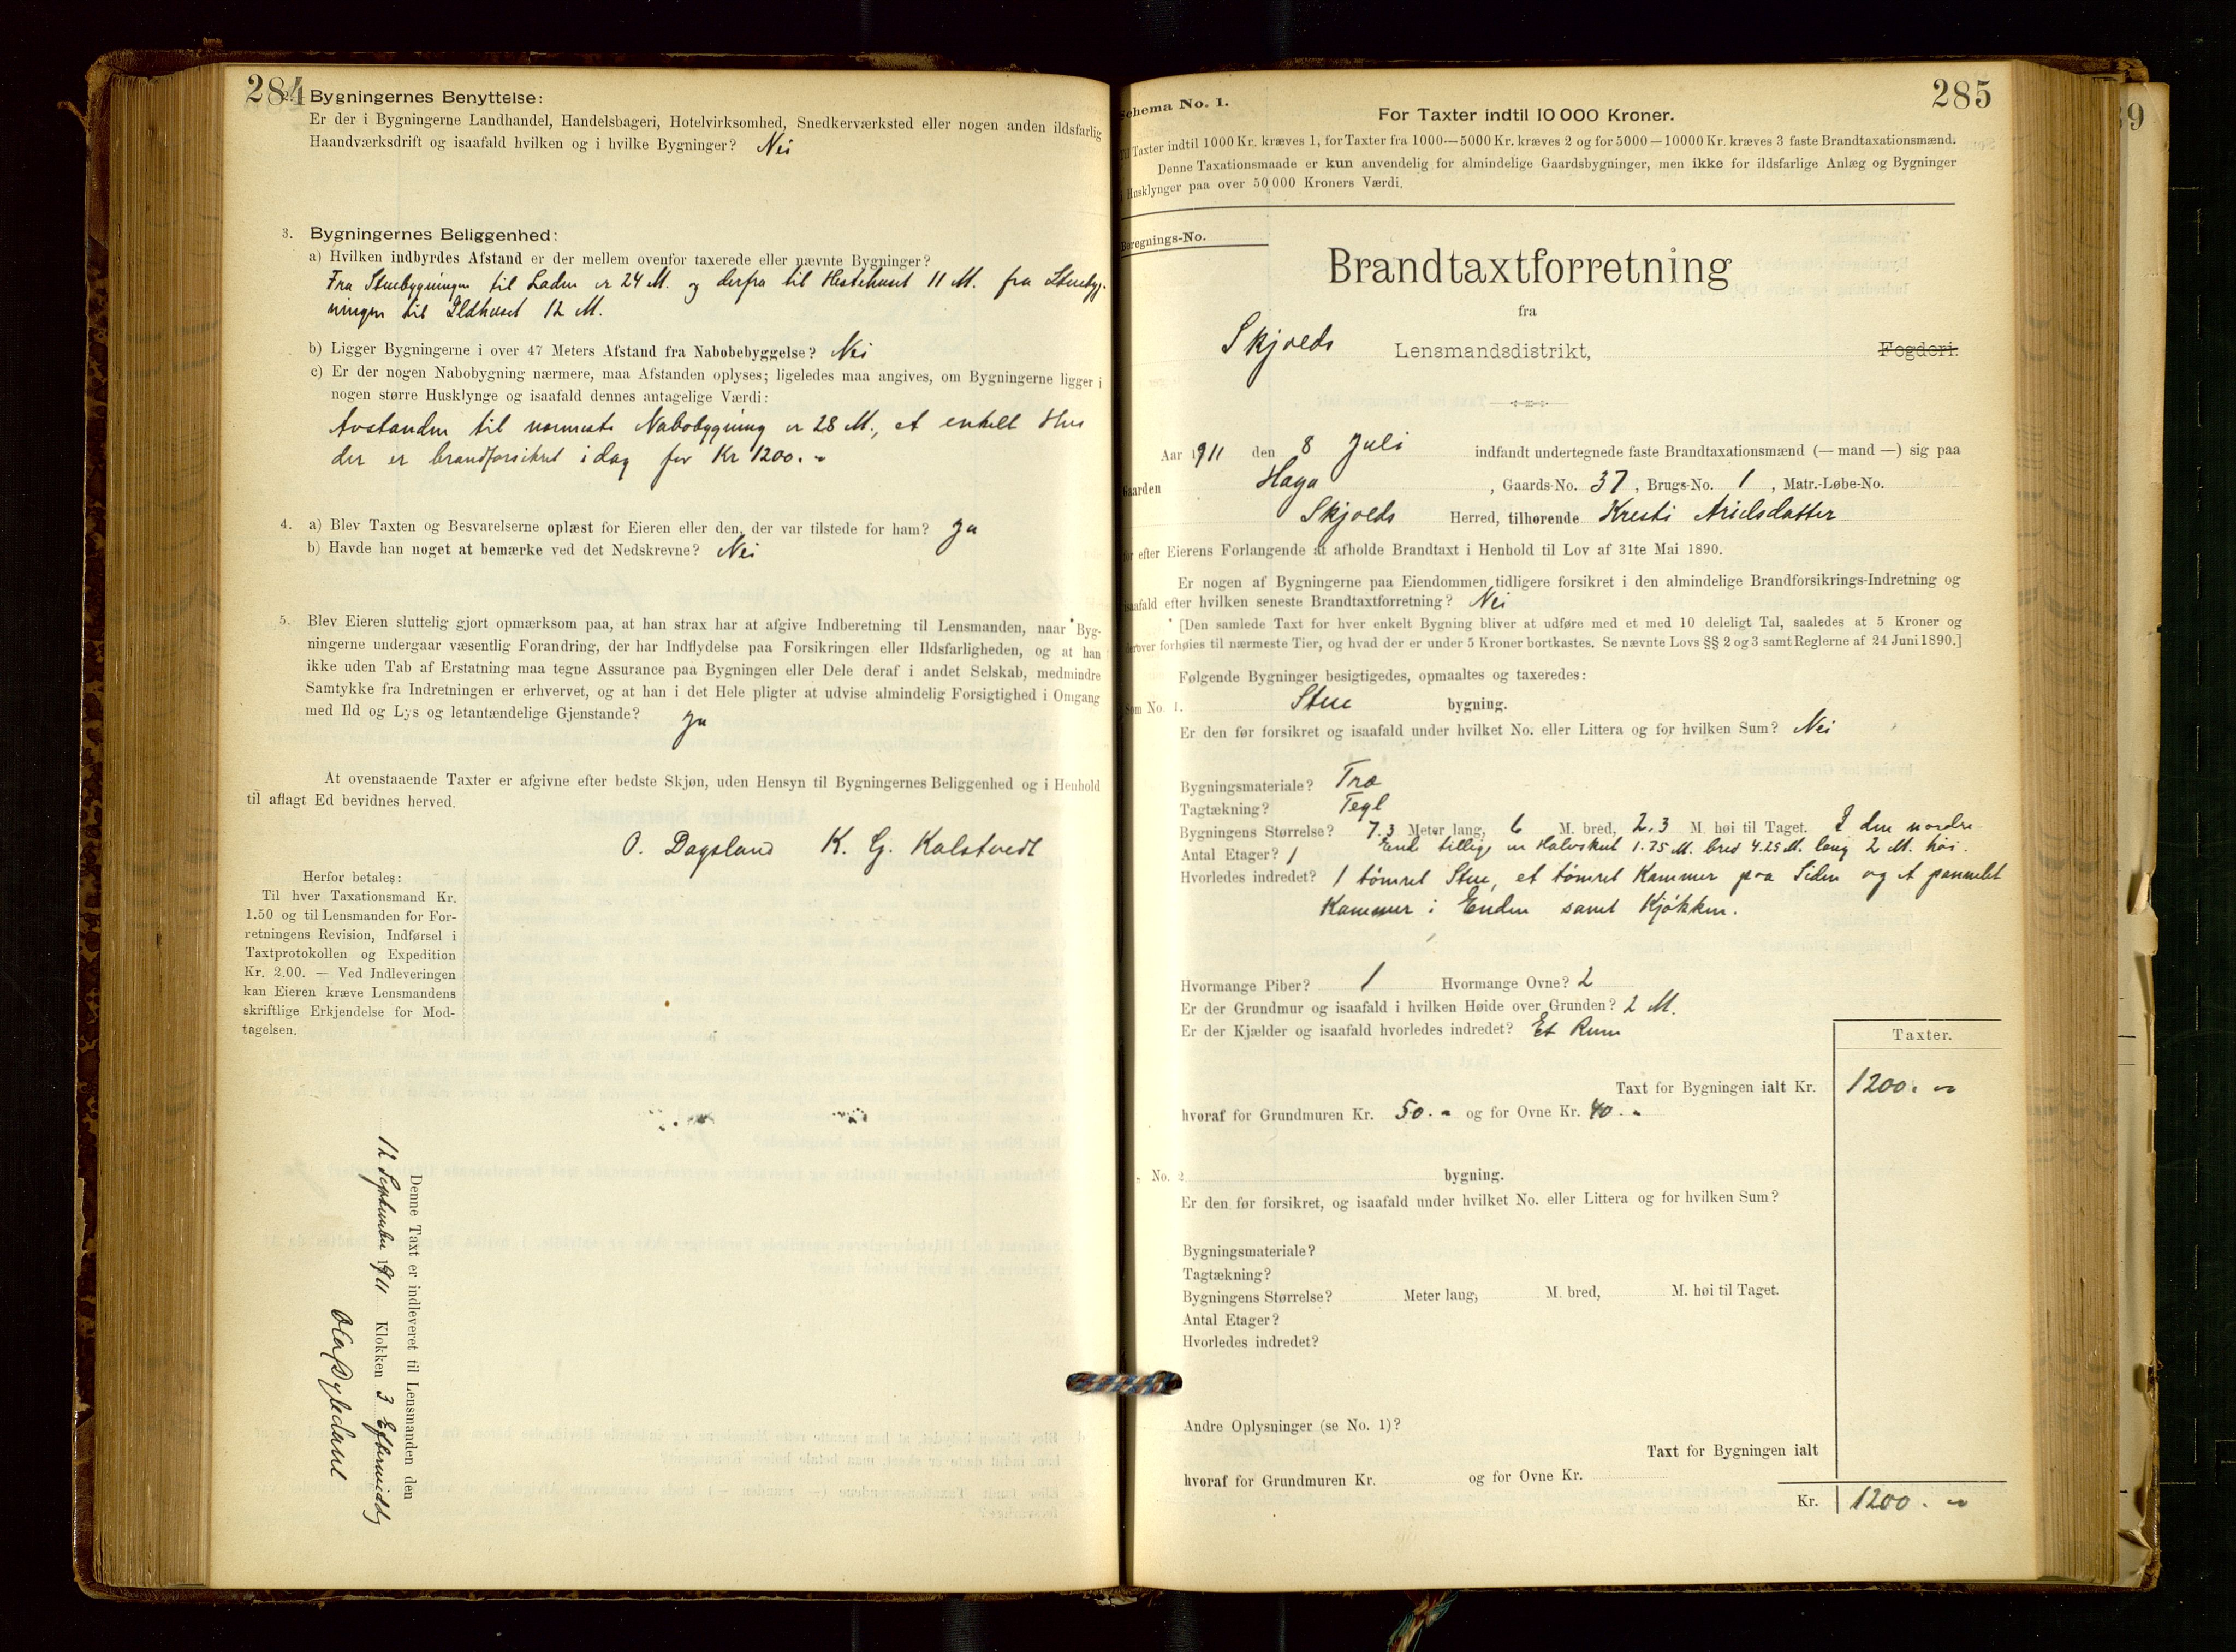 284
2. Bygningernes Benyttelse:
Er der i Bygningerne Landhandel, Handelsbageri, Hotelvirksomhed, Snedkerværksted eller nogen anden ildsfarlig
Haandværksdrift og isaafald hvilken og i hvilke Bygninger? Nei
3. Bygningernes Beliggenhed:
a) Hvilken indbyrdes Afstand er der mellem ovenfor taxerede eller nævnte Bygninger?
Fra Stuebygningen til Laden er 24 M. og derfra til Hestehuset 11 M. fra Stuebyg-
ningen til Ildhuset 12 M.
b) Ligger Bygningerne i over 47 Meters Afstand fra Nabobebyggelse? Nei
c) Er der nogen Nabobygning nærmere, maa Afstanden oplyses; ligeledes maa angives, om Bygningerne ligger i
nogen større Husklynge og isaafald dennes antagelige Værdi:
Avstanden til nærmeste Nabobygning er 28 M., et enkelt Hus
der er brandforsikret idag for Kr 1200. -
4. a) Blev Taxten og Besvarelserne oplæst for Eieren eller den, der var tilstede for ham? Ja
b) Havde han noget at bemærke ved det Nedskrevne? Nei
5. Blev Eieren sluttelig gjort opmærksom paa, at han strax har at afgive Indberetning til Lensmanden, naar Byg-
ningerne undergaar væsentlig Forandring, der har Indflydelse paa Forsikringen eller Ildsfarligheden, og at han
ikke uden Tab af Erstatning maa tegne Assurance paa Bygningen eller Dele deraf i andet Selskab, medmindre
Samtykke fra Indretningen er erhvervet, og at han i det Hele pligter at udvise almindelig Forsigtighed i Omgang
med Ild og Lys og letantændelige Gjenstande? Ja
At ovenstaaende Taxter er afgivne efter bedste Skjøn, uden Hensyn til Bygningernes Beliggenhed og i Henhold
til aflagt Ed bevidnes herved.
O. Dagsland K. G. Kalstvedt
Herfor betales:
Til hver Taxationsmand Kr.
1.50 og til Lensmanden for For-
retningens Revision, Indførsel i
Taxtprotokollen og Expedition
Kr. 2.00. — Ved Indleveringen
kan Eieren kræve Lensmandens
skriftlige Erkjendelse for Mod-
tagelsen.
Denne Taxt er indleveret til Lensmanden den
12 September 1911 Klokken 3 Eftermiddag
285
Schema No. 1.
For Taxter indtil 10 000 Kroner.
Til Taxter indtil 1000 Kr. kræves 1, for Taxter fra 1000—5000 Kr. kræves 2 og for 5000—10000 Kr. kræves 3 faste Brandtaxationsmænd.
Denne Taxationsmaade er kun anvendelig for almindelige Gaardsbygninger, men ikke for ildsfarlige Anlæg og Bygninger
i Husklynger paa over 50 000 Kroners Værdi.
Beregnings-No.
Brandtaxtforretning
fra
Skjolds Lensmandsdistrikt, Fogderi.
Aar 1911 den 8 Juli indfandt undertegnede faste Brandtaxationsmænd (— mand —) sig paa
Gaarden Haga, Gaards-No. 37, Brugs-No. 1, Matr.-Løbe-No.
Skjolds Herred, tilhørende Kresti Arielsdatter
for efter Eierens Forlangende at afholde Brandtaxt i Henhold til Lov af 31te Mai 1890.
Er nogen af Bygningerne paa Eiendommen tidligere forsikret i den almindelige Brandforsikrings-Indretning og
isaafald efter hvilken seneste Brandtaxtforretning? Nei
[Den samlede Taxt for hver enkelt Bygning bliver at udføre med et med 10 deleligt Tal, saaledes at 5 Kroner og
derover forhøies til nærmeste Tier, og hvad der er under 5 Kroner bortkastes. Se nævnte Lovs §§ 2 og 3 samt Reglerne af 24 Juni 1890.]
Følgende Bygninger besigtigedes, opmaaltes og taxeredes:
Som No. 1. Stue bygning.
Er den før forsikret og isaafald under hvilket No. eller Littera og for hvilken Sum? Nei
Bygningsmateriale? Træ
Tagtækning? Tegl
Bygningens Størrelse? 7.3 Meter lang, 6 M. bred, 2.3 M. høi til Taget. I den nordre
Antal Etager? 1 Ende tillige en Halvskut 1.75 M. bred 4.25 M. lang 2 M. høi.
Hvorledes indredet? 1 tømret Stue, et tømret Kammer paa Siden og et pannelet
Kammer i Enden samt Kjøkken.
Hvormange Piber? 1 Hvormange Ovne? 2
Er der Grundmur og isaafald i hvilken Høide over Grunden? 2 M.
Er der Kjælder og isaafald hvorledes indredet? Et Rum
Taxter.
Taxt for Bygningen ialt Kr. 1200. -
hvoraf for Grundmuren Kr. 50. - og for Ovne Kr. 40. -
No. 2 bygning.
Er den før forsikret, og isaafald under hvilket No. eller Littera og for hvilken Sum?
Bygningsmateriale?
Tagtækning?
Bygningens Størrelse? Meter lang, M. bred, M. høi til Taget.
Antal Etager?
Hvorledes indredet?
Andre Oplysninger (se No. 1)?
Taxt for Bygningen ialt
hvoraf for Grundmuren Kr. og for Ovne Kr.
Kr. 1200. -